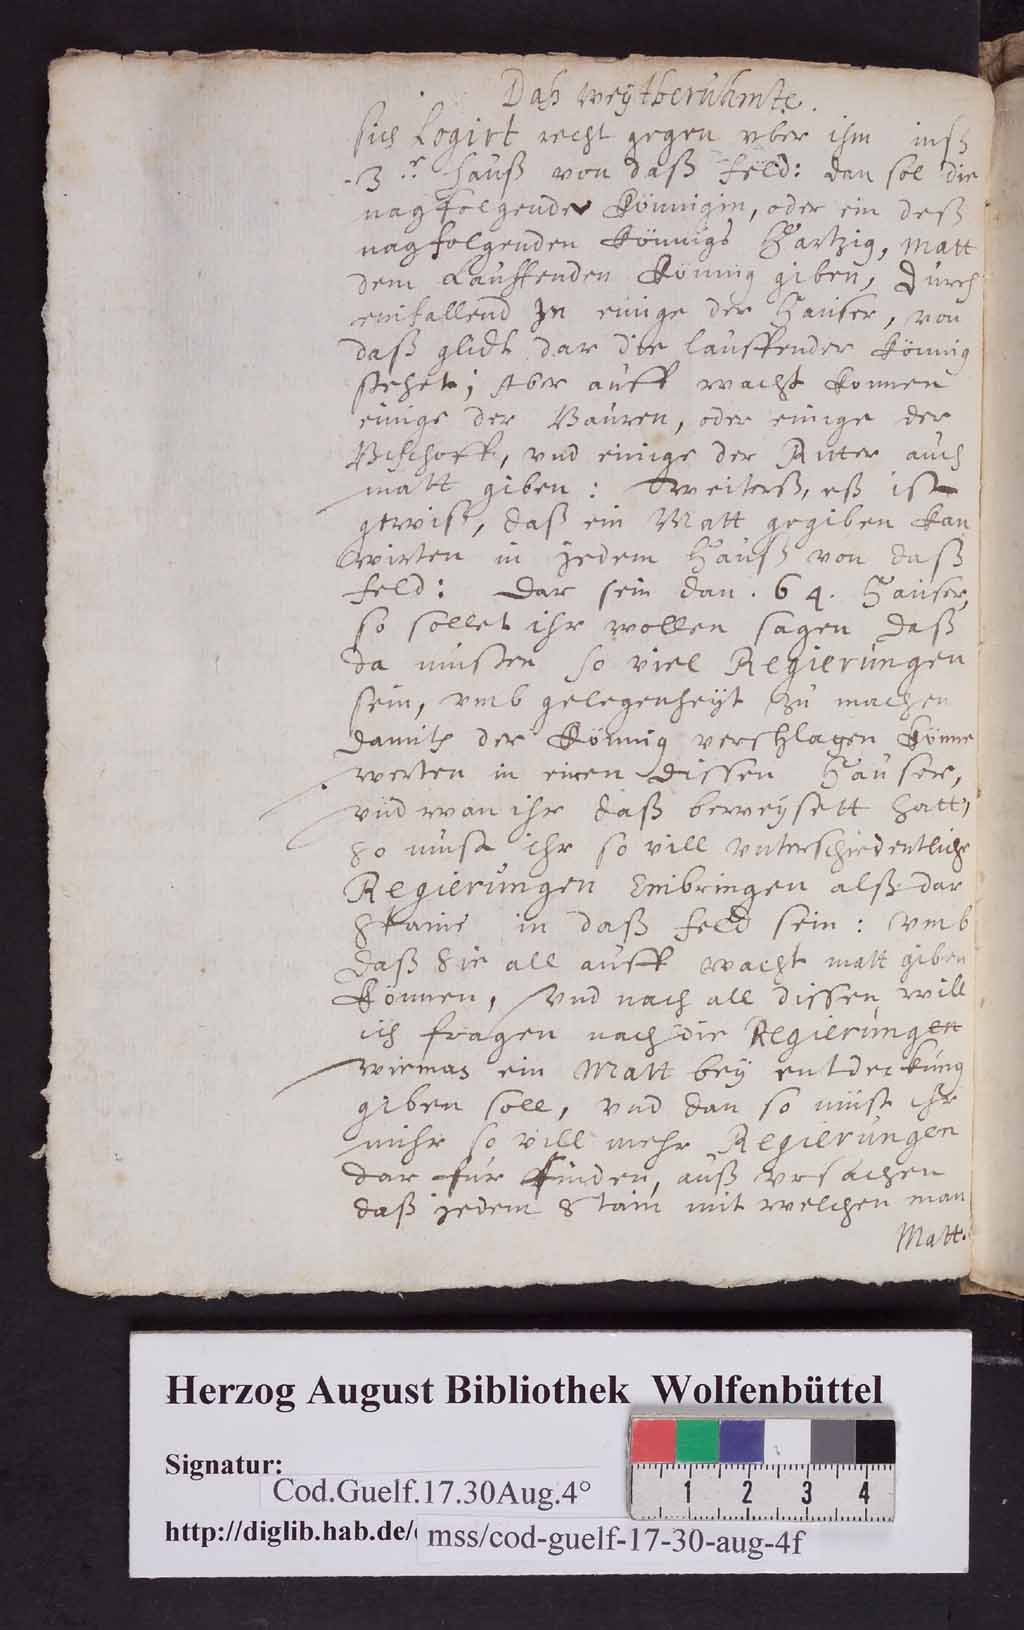 Daß weÿtberühmte.
sich Logirt recht gegen vber ihm inß
3.r Hauß von daß feld: dan sol die
nagfolgende Könnigin, oder ein deß
nagfolgenden Könnigs Hartzig, Matt
dem Lauffenden Könnig giben, dürch
einfallend In einige der Hauser, von
daß glidt dar die lauffender Könnig
stehet; Aber auff wacht konnen
einige der Bauren, oder einige der
Bischoff, vnd einige der Ritter auch
matt giben: weiterß, eß ist
gewiß, daß ein Matt gegiben kan
wirten in jedem Hauß von daß
feld: Dar sein dan .64. Hauser,
so sollet ihr wollen sagen daß
da müsten so viel Regierüngen
sein, vmb gelegenheÿt zu machen
damit der Könnig verschlagen könne
werten in einen dissen Hauser,
vnd wan ihr daß beweÿsett hatt,
so müst ihr so vill vnterschiedentliche
Regierüngen Einbringen alß dar
Staine in daß feld sein: vmb
daß Sie all auff wacht matt giben
Können, Vnd nach all dissen will
ich fragen nach die Regierüngen
wiemas ein Matt beÿ entdeckung
giben soll, vnd dan so müst ihr
mihr so vill mehr Regierüngen
dar für finden, auß vrsachen
daß jedem Stain mit welchen man
Matt.
Herzog August Bibliothek Wolfenbüttel
Signatur:
Cod.Guelf.17.30Aug.4°
http://diglib.hab.de/
mss/cod-guelf-17-30-aug-4f
1 2 3 4